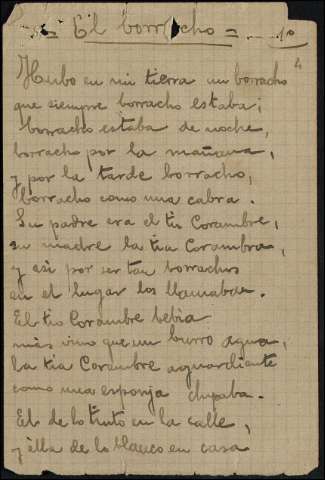 = El borracho = 1º
4
Hubo en mi tierra un borracho
que siempre borracho estaba;
borracho estaba de noche,
borracho por la mañana,
y por la tarde borracho,
borracho como una cabra.
Su padre era el tío Corambre,
su madre la tía Corambra,
y asi por ser tan borrachos
en el lugar los llamaban.
El tio Corambre bebia
más vino que un burro agua,
la tía Corambre aguardiente
como una esponja chupaba.
El de lo tinto en la calle,
y élla de lo blanco en casa